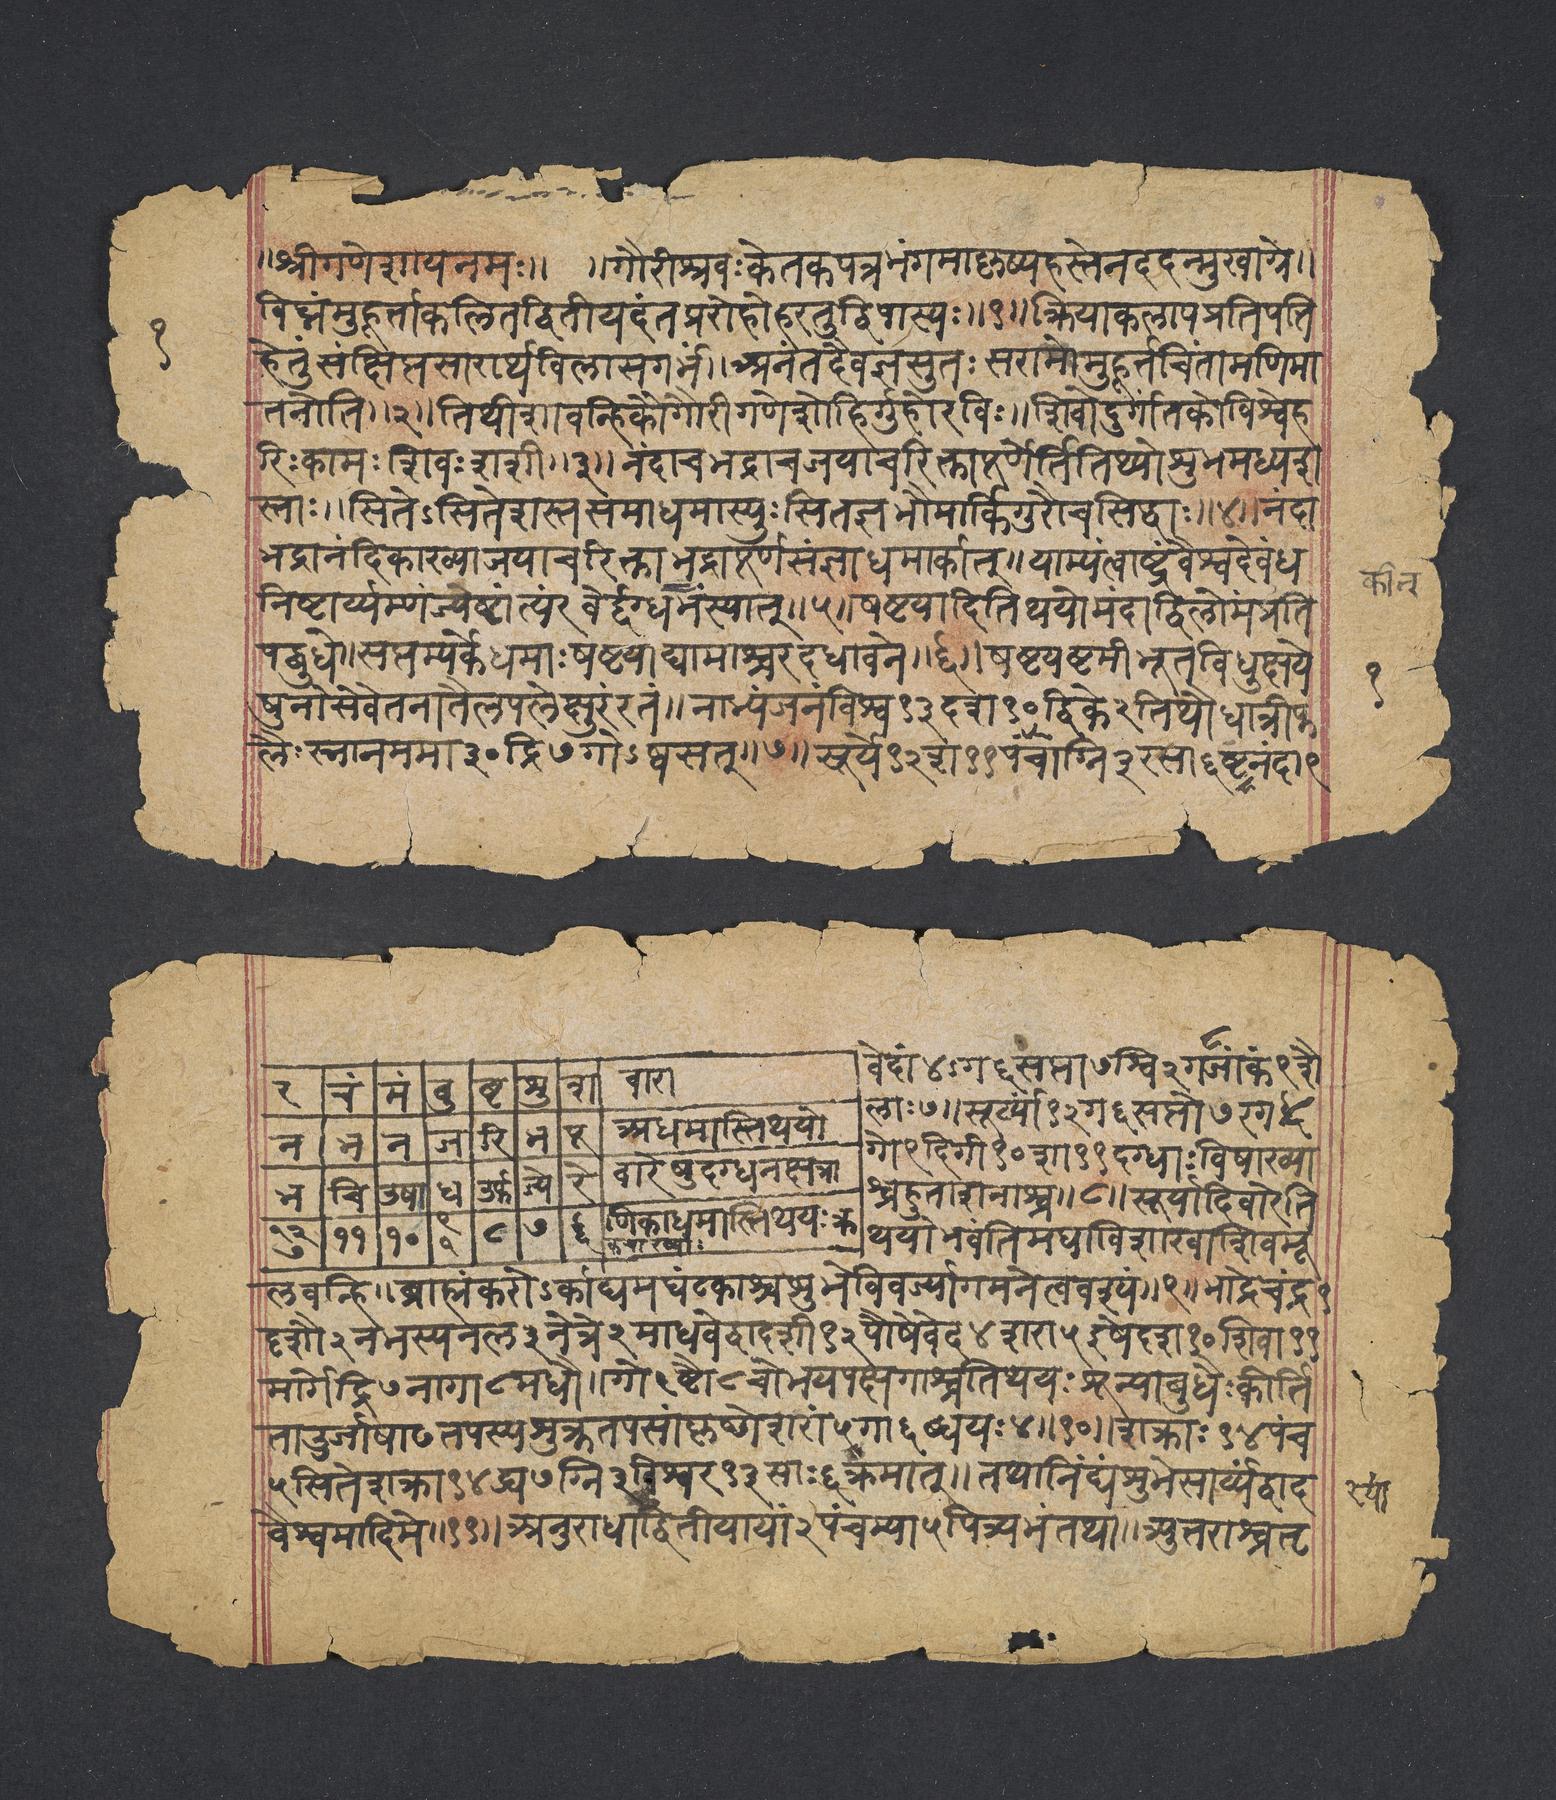 ॥श्रीगणेशायनमः॥ ॥गौरीश्रवःकेतकपत्रभंगमाकृष्यहस्तेनददन्मुखाग्रे॥
विघ्नंमुहूर्त्ताकलितद्वितीयदंतप्ररोहोहरतुद्विपास्यः॥१॥क्रियाकलापप्रतिपत्ति
१
हेतुंसंक्षिप्तसारार्थविलासगर्भं॥अनंतदैवज्ञसुतःसरामोमुहूर्त्तचिंतामणिमा
तनोति॥२॥तिथीशावन्हिकौगौरीगणेशोहिर्गुहोरविः॥शिवोदुर्गांतकोविश्वेह
रिःकामःशिवःशशी॥३॥नंदाचभद्राचजयाचरिक्तापूर्णेतितिथ्योशुभमध्यश
स्ताः॥सितेऽसितेशस्तसमाधमास्युःसितज्ञभौमार्किगुरौचसिद्धाः॥४॥नंदा
भद्रानंदिकाख्याजयाचरिक्ताभद्रापूर्णसंज्ञाधमार्कात्॥याम्यंत्वाष्ट्रंवैश्वदेवंध
निष्टार्य्यम्णंज्येष्टांत्यंरवेर्द्दग्धभंस्यात्॥५॥षष्टयादितिथयोमंदाद्विलोमंप्रति
पद्बुधे॥सप्तम्यर्केधमाःषष्टयाद्यामाश्चरदधावने॥६॥षष्टयष्टमीभूतविधुक्षये
१
षुनोसेवेतनातैलपलेक्षुरंरतं॥नाभ्यंजनंविश्व१३दश१०द्विके२तिथौधात्रीफ
लैःस्नानममा३०द्रि७गोऽष्वसत्॥७॥सूर्ये१२श११पंचाग्नि३रसा६ष्टनंदा९
र चं मं बु बृ शु श वारा
न भ न ज रि भ पू अधमास्तिथयो
भ चि उषा ध उफ ज्ये रे वारेषुदग्धनक्षत्रा
१२ ११ १० ९ ८ ७ ६ णिकाधमास्तिथयःक्र
वेदां४ऽग६सप्ता७श्वि२गजांकं९शै
लाः७॥सूर्य्यां१२ग६सप्तो७रग८
गो९दिगी१०शा११दग्धाःविषाख्या
श्चहुताशनाश्च॥८॥सूर्यादिवारेति
थयोभवंतिमघाविशाखाशिवमू
लवन्हि॥ब्राह्मंकरोऽर्काद्यमघंटकाश्चशुभेविवर्ज्यागमनेत्ववश्यं॥९॥भाद्रेचंद्र१
दृशौ२नभस्यनल३नेत्रे२माधवेद्वादशी१२पौषेवेद४शरा५इषेदश१०शिवा११
मार्गेद्रि७नागा८मधौ॥गो९ष्टौ८चोभयपक्षगाश्चतिथयःशून्याबुधैःकीर्ति
ताउर्जाषाढतपस्यशुक्रतपसांकृष्णेशरां५गा६ब्धयः४॥१०॥शक्राः१४पंच
५सितेशक्रा१४द्र्य७ग्नि३विश्वर१३साः६क्रमात्॥तथानिंद्यंशुभेसार्प्यंद्वाद
वैश्वमादिमे॥११॥अनुराधाद्वितीयायां२पंचम्या५पित्र्यभंतथा॥त्र्युत्तराश्चतृ